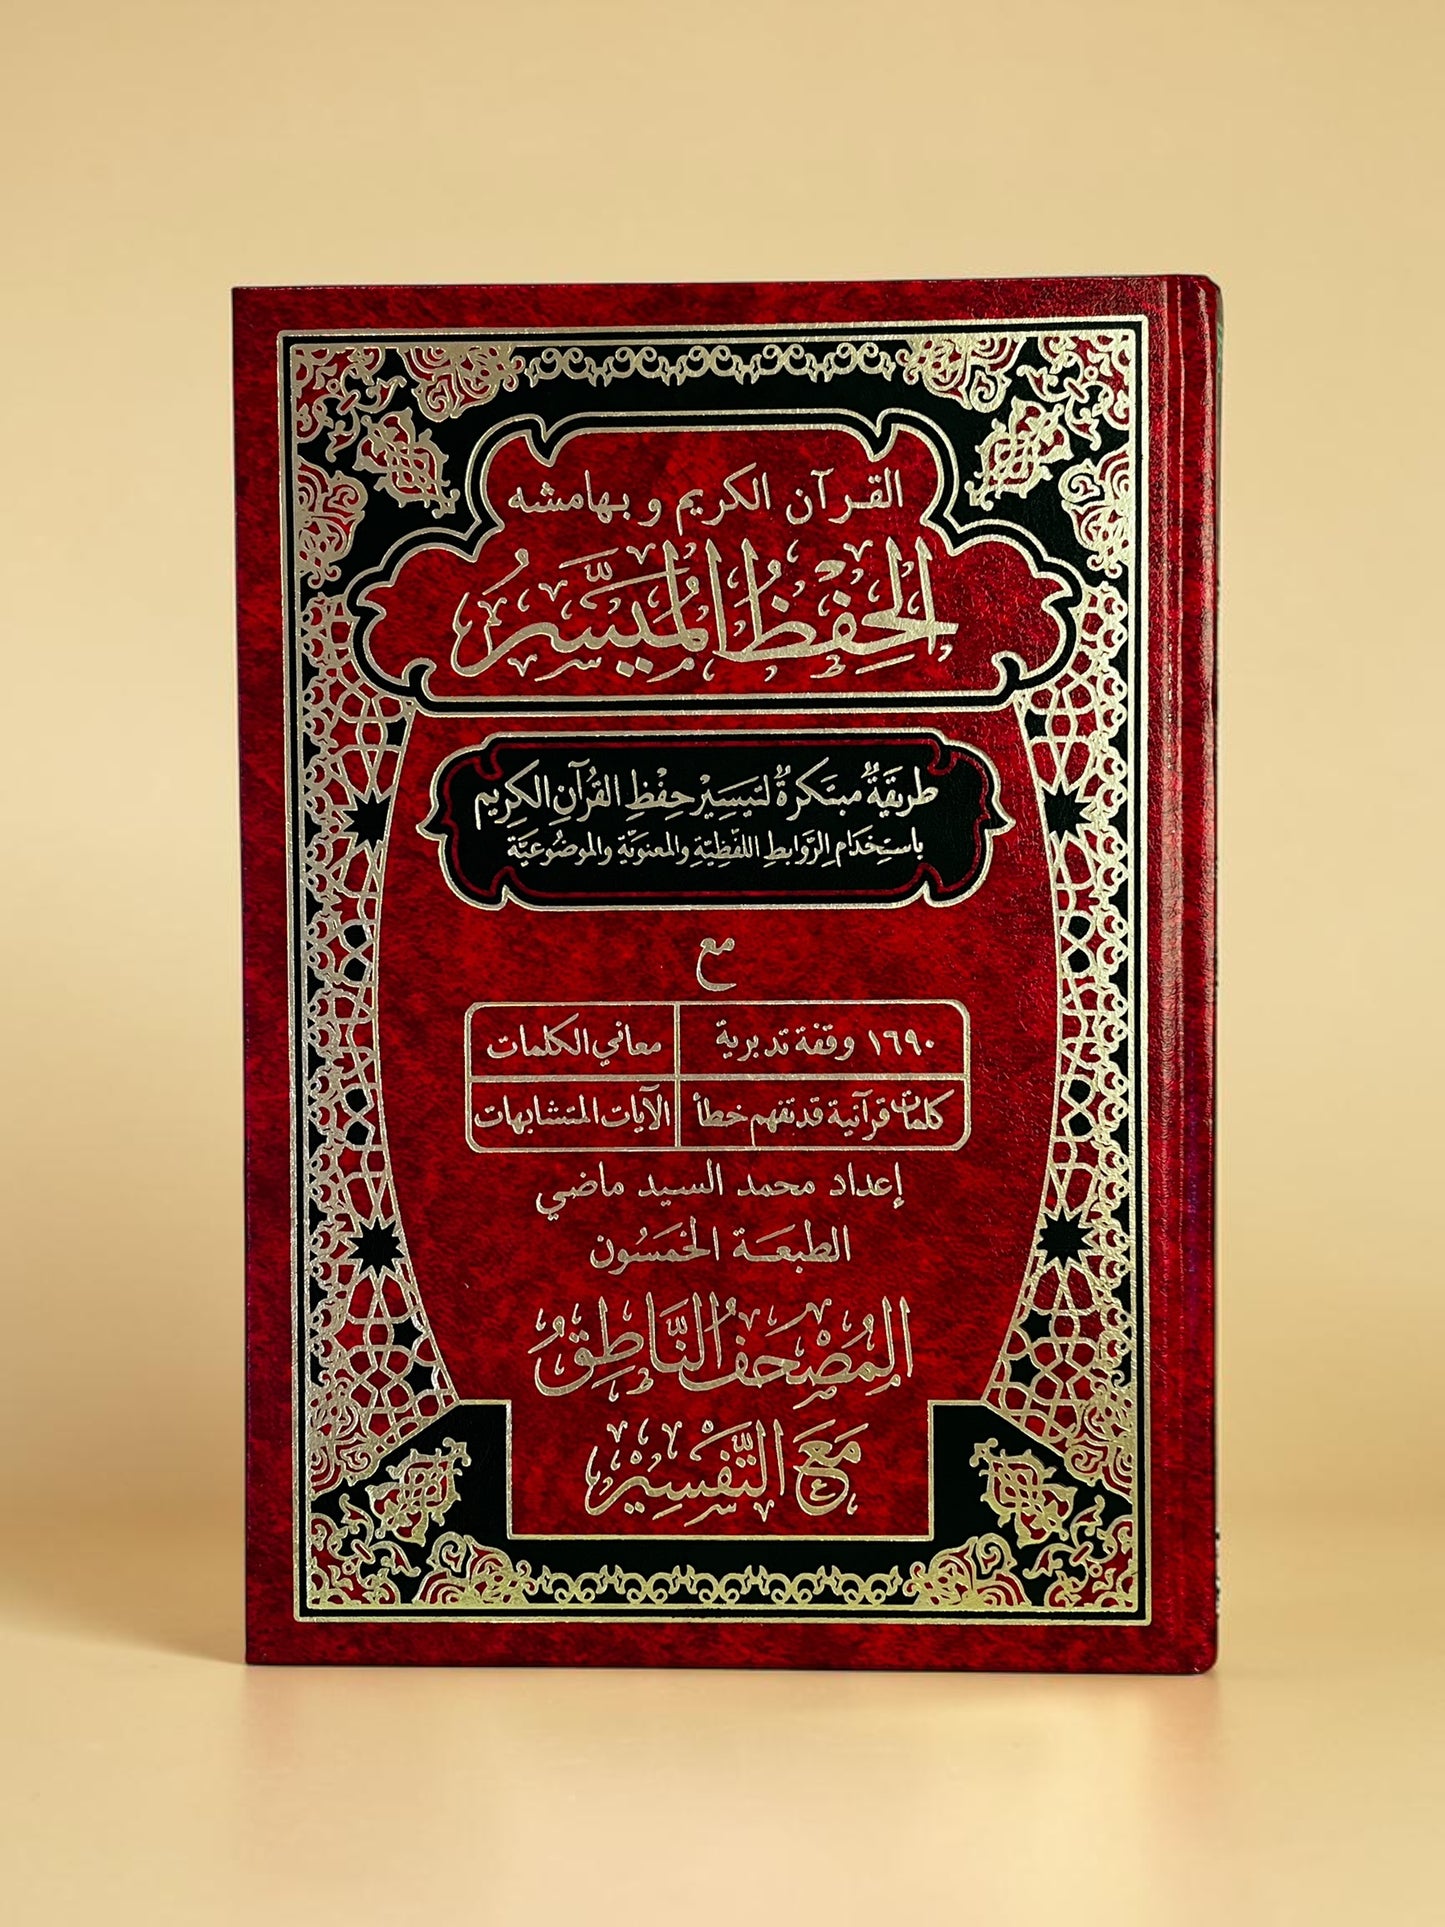 القرآن الكريم وبهامشه
الحِفْظُ المُيَسَّرُ
طريقَةٌ مبتَكرةٌ لتيسِيْر حِفْظِ القُرآنِ الكَرِيم
باستِخدَامِ الرَّوابطِ اللفّظيّةِ والمعنويّةِ والموضُوعيَّة
مع
١٦٩٠ وقفة تدبرية
معاني الكلمات
كلمات قرآنية قد تفهم خطأ
الآيات المتشابهات
إعداد محمد السيد ماضي
الطبعَة الخمَسُون
المُصْحَفُ النَّاطِقُ
مَعَ التَّفْسِيْر